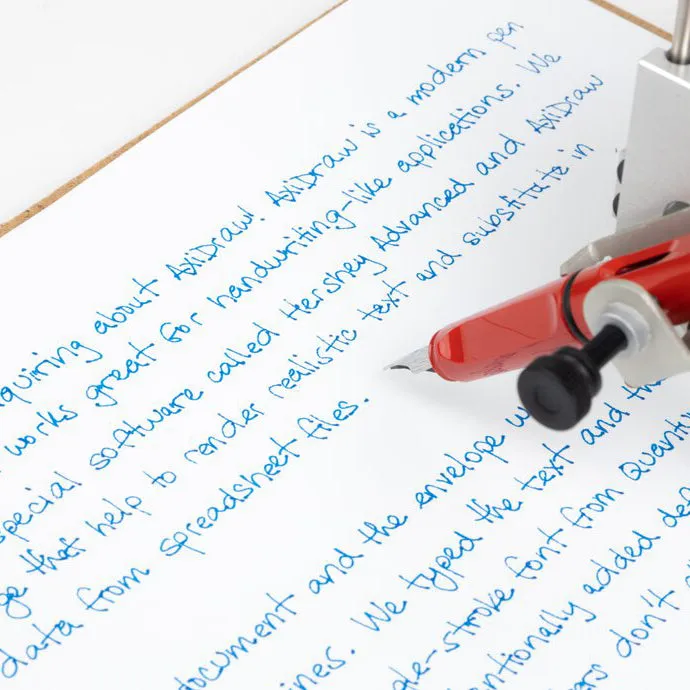 quiring about AxiDraw! AxiDraw is a modern pen
works great for handwriting-like applications. We
special software called Hershey Advanced and AxiDraw
ge that help to render realistic text and substitute in
data from spreadsheet files.
ocument and the envelope w
ines. We typed the text and the
le-stroke font from Quantu
ntionally added de
ers don't